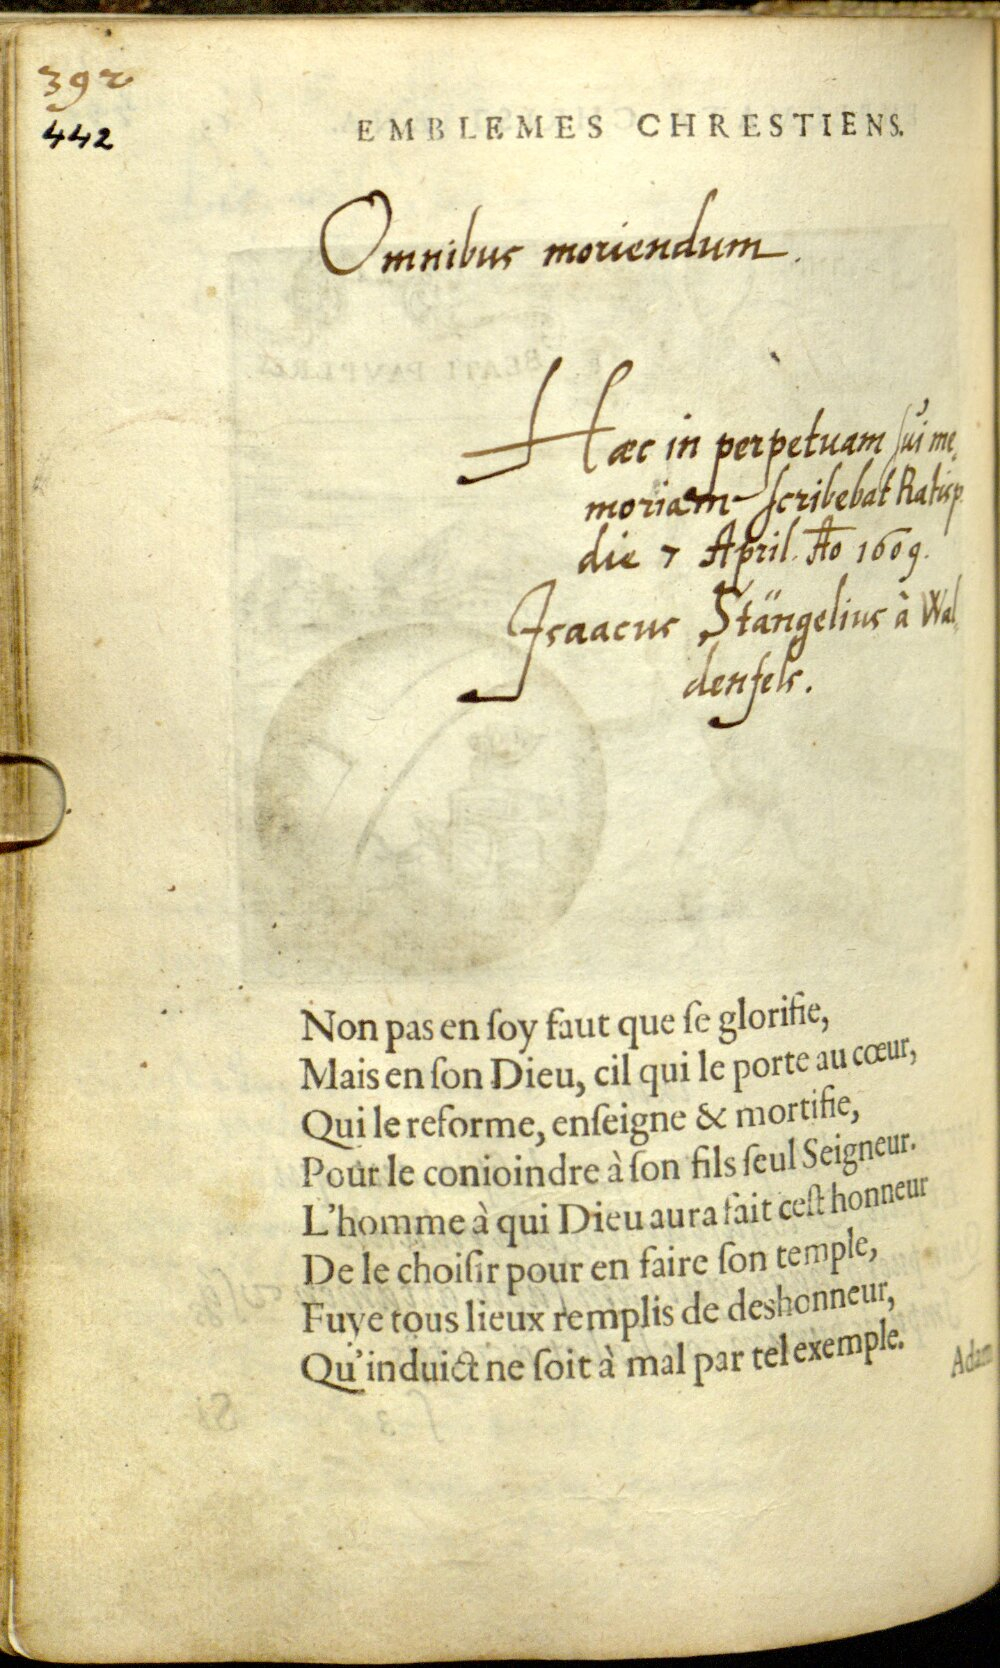 392
442
EMBLEMES CHRESTIENS.
Omnibus moriendum.
Hæc in perpetuam sui me,
moriam scribebat Ratisp.
die 7 April. Ao 1609.
Isaacus Stängelius à Wal,
denfels.
Non pas en ſoy faut que ſe glorifie,
Mais en ſon Dieu, cil qui le porte au cœur,
Qui le reforme, enſeigne & mortifie,
Pour le conioindre à ſon fils ſeul Seigneur.
L'homme à qui Dieu aura fait ceſt honneur
De le choiſir pour en faire ſon temple,
Fuye tous lieux remplis de deshonneur,
Qu'induict ne ſoit à mal par tel exemple.
Adam